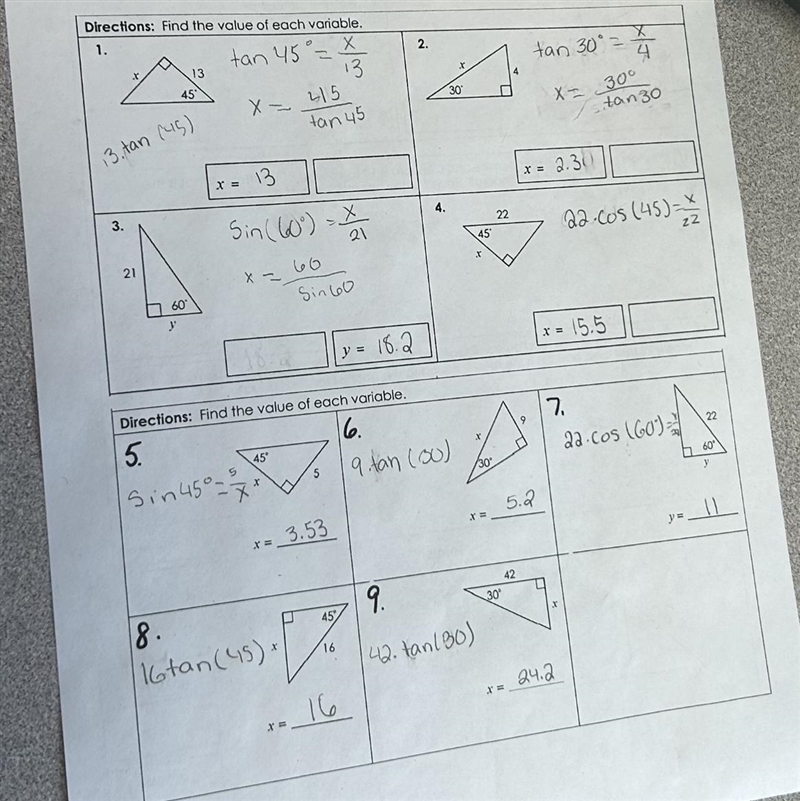 Directions: Find the value of each variable.
1.
x
13
45°
tan 45° = x/13
x = 45/tan45
13.tan (45)
x = 13
2.
x
4
30°
tan 30° = x/4
x = 30°/tan30
x = 2.30
3.
21
60°
y
Sin(60°) = x/21
x = 60/Sin60
18.2
y = 18.2
4.
22
45°
x
22.cos(45) = x/22
x = 15.5
Directions: Find the value of each variable.
5.
45°
x
5
Sin 45° = 5/x
x = 3.53
6.
x
9
30°
9.tan
x = 5.2
7.
22
60°
y
22.cos(60°) =
y = 11
8.
45°
x
16
16tan(45)
x = 16
9.
42
30°
x
42.tan(30)
x = 24.2